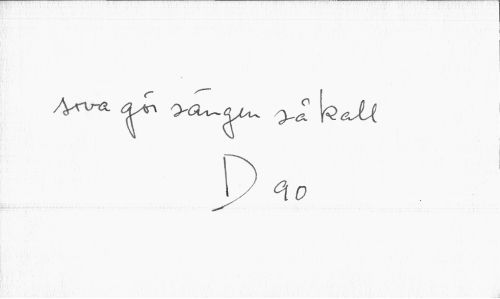 sova gör sängen så kall
D 90